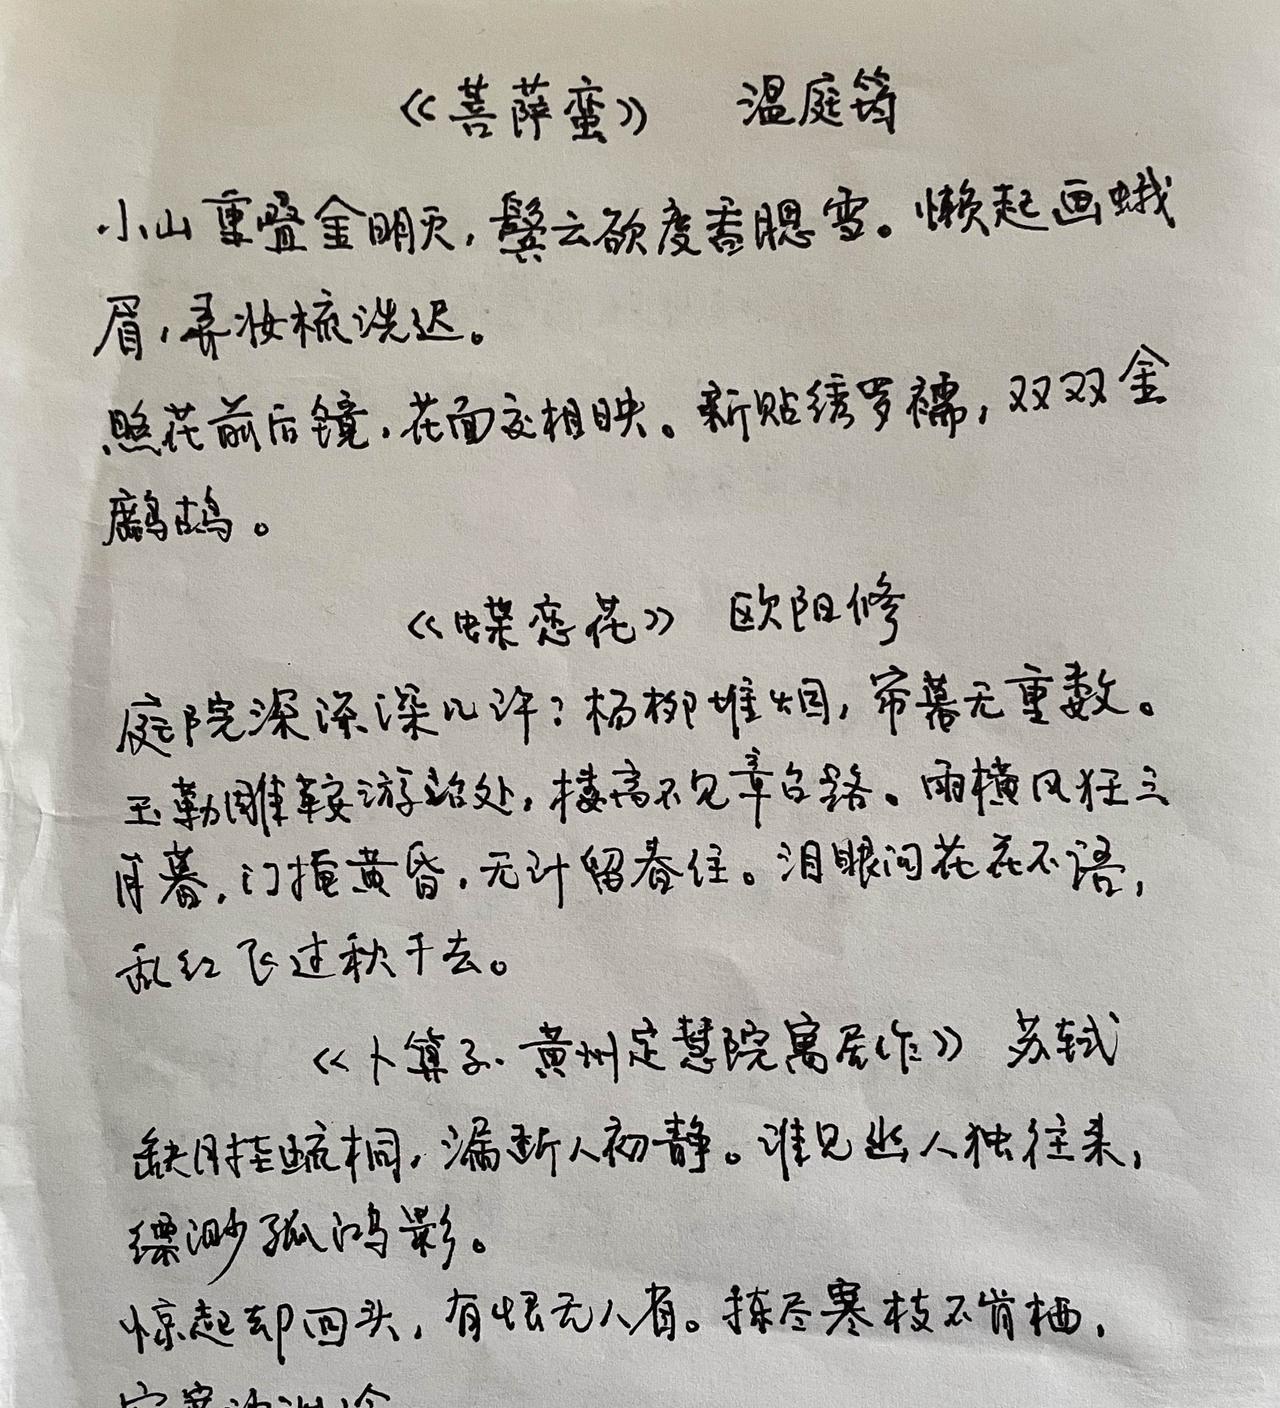 《菩萨蛮》 温庭筠
小山重叠金明灭，鬓云欲度香腮雪。懒起画蛾
眉，弄妆梳洗迟。
照花前后镜，花面交相映。新贴绣罗襦，双双金
鹧鸪。
《蝶恋花》 欧阳修
庭院深深深几许？杨柳堆烟，帘幕无重数。
玉勒雕鞍游冶处，楼高不见章台路。雨横风狂三
月暮，门掩黄昏，无计留春住。泪眼问花花不语，
乱红飞过秋千去。
《卜算子·黄州定慧院寓居作》 苏轼
缺月挂疏桐，漏断人初静。谁见幽人独往来，
缥缈孤鸿影。
惊起却回头，有恨无人省。拣尽寒枝不肯栖，